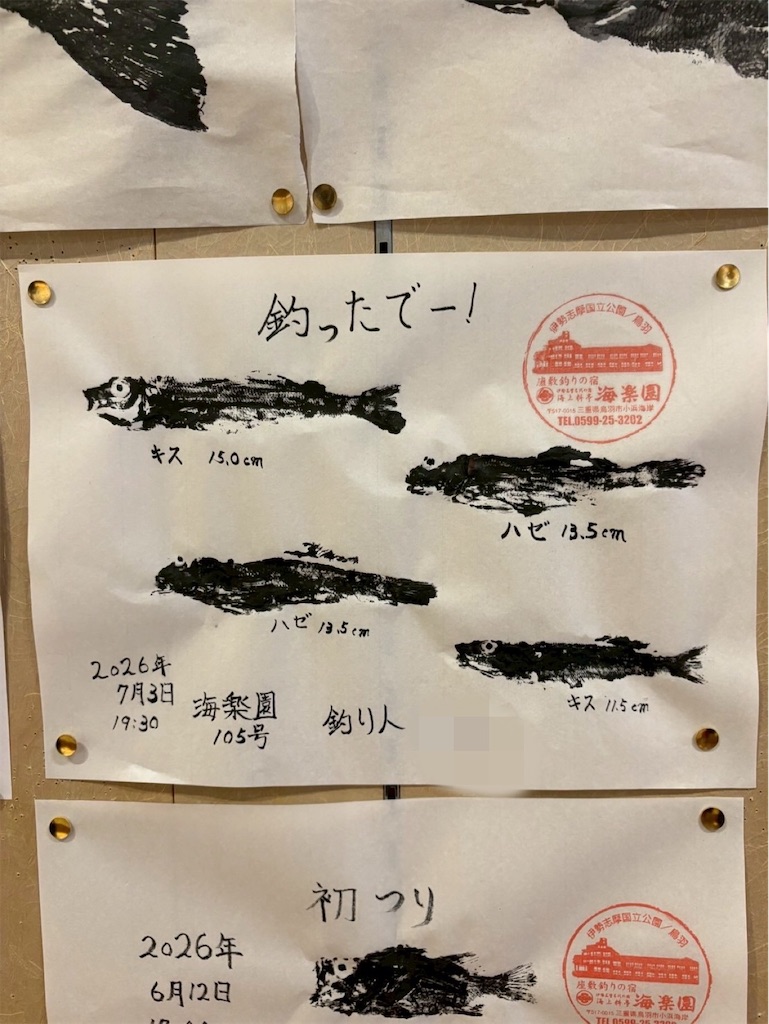 釣ったでー!
伊勢志摩国立公園/鳥羽
座敷釣りの宿
海上料亭 海楽園
〒517-0015 三重県鳥羽市小浜海岸
TEL.0599-25-3202
キス 15.0cm
ハゼ 13.5cm
ハゼ 13.5cm
キス 11.5cm
2026年
7月3日
19:30
海楽園
105号
釣り人
初つり
2026年
6月12日
伊勢志摩国立公園/鳥羽
座敷釣りの宿
海上料亭 海楽園
〒517-0015 三重県鳥羽市小浜海岸